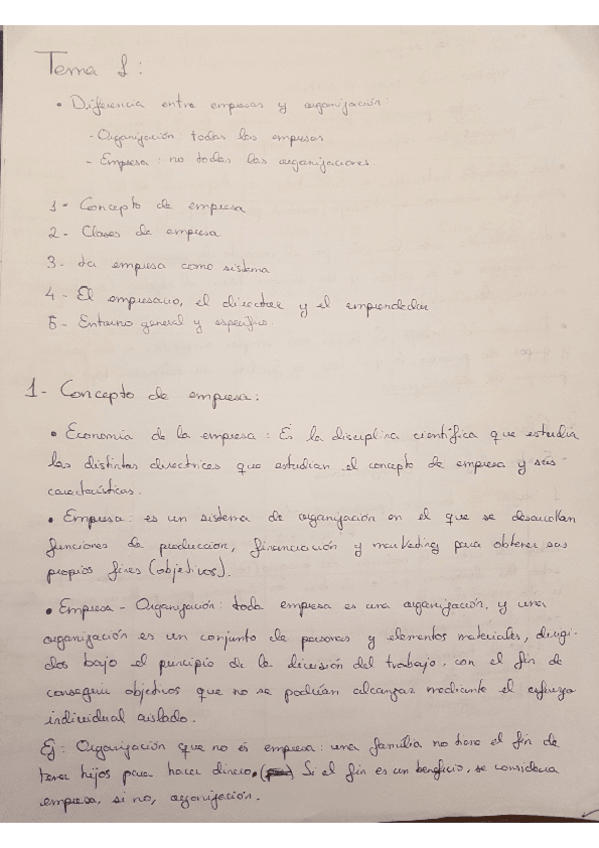 Tema 1:
• Diferencia entre empresas y organización:
- Organización: todas las empresas
- Empresa: no todas las organizaciones.
1- Concepto de empresa
2- Clases de empresa
3- La empresa como sistema
4- El empresario, el director y el emprendedor
5- Entorno general y específico.
1- Concepto de empresa:
• Economía de la empresa: Es la disciplina científica que estudia
las distintas directrices que estudian el concepto de empresa y sus
características.
• Empresa: es un sistema de organización en el que se desarrollan
funciones de producción, financiación y marketing para obtener sus
propios fines (objetivos).
• Empresa - Organización: toda empresa es una organización, y una
organización es un conjunto de personas y elementos materiales, dirigi-
dos bajo el principio de la división del trabajo, con el fin de
conseguir objetivos que no se podrían alcanzar mediante el esfuerzo
individual aislado.
Ej: Organización que no es empresa: una familia no tiene el fin de
tener hijos para hacer dinero. Si el fin es un beneficio, se considera
empresa, si no, organización.